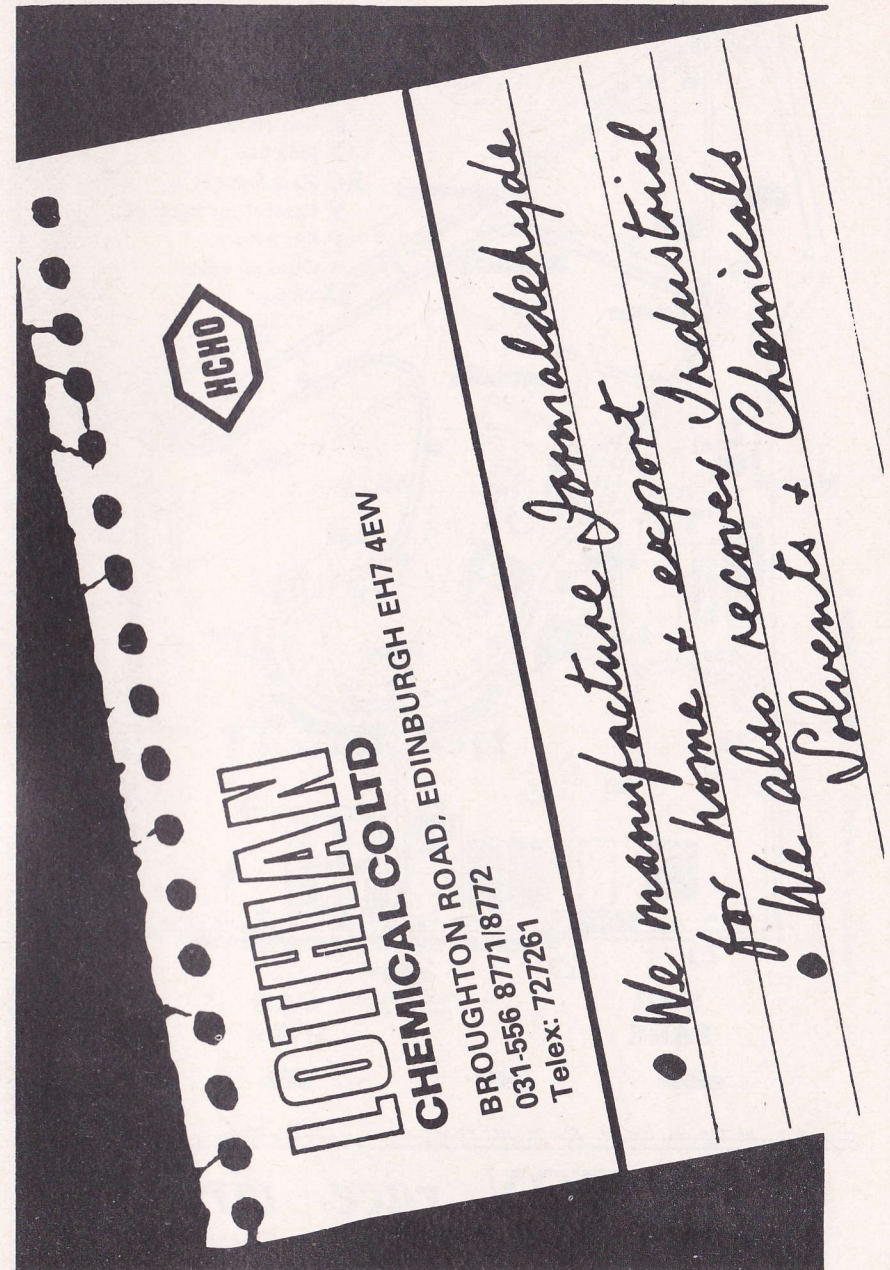 HCHO
LOTHIAN
CHEMICAL CO LTD
BROUGHTON ROAD, EDINBURGH EH7 4EW
031-556 8771/8772
Telex: 727261
• We manufacture Formaldehyde
for home + export
• We also recover Industrial
Solvents + Chemicals